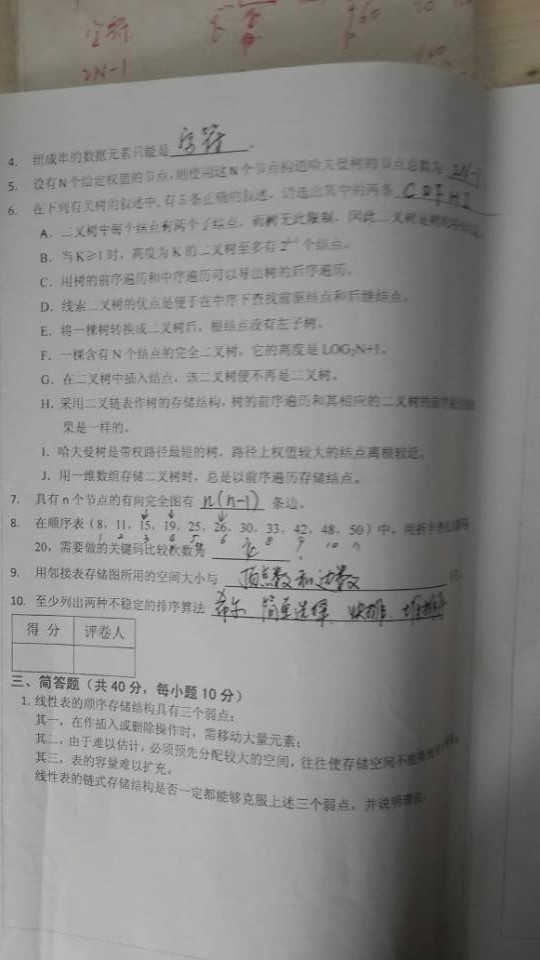 全部
2N-1
4. 组成串的数据元素只能是 字符 。
5. 设有N个给定权值的节点,则使用这N个节点构造哈夫曼树的节点总数为 2N-1
6. 在下列有关树的叙述中,有5条正确的叙述,请选出其中的两条 C D F H I
A. 二叉树中每个结点有两个子结点,而树无此限制,因此二叉树是树的
B. 当K≥1时,高度为K的二叉树至多有2 个结点。
C. 用树的前序遍历和中序遍历可以导出树的后序遍历。
D. 线索二叉树的优点是便于在中序下查找前驱结点和后继结点。
E. 将一棵树转换成二叉树后,根结点没有左子树。
F. 一棵含有N个结点的完全二叉树,它的高度是LOG₂N+1。
G. 在二叉树中插入结点,该二叉树便不再是二叉树。
H. 采用二叉链表作树的存储结构,树的前序遍历和其相应的二叉树的前序遍历
果是一样的。
I. 哈夫曼树是带权路径最短的树,路径上权值较大的结点离根较近。
J. 用一维数组存储二叉树时,总是以前序遍历存储结点。
7. 具有n个节点的有向完全图有 n(n-1) 条边。
8. 在顺序表(8,11,15,19,25,26,30,33,42,48,50)中,用折半
1 2 3 4 5 6 7 8 9 10 11
20,需要做的关键码比较次数为
9. 用邻接表存储图所用的空间大小与 顶点数和边数
10. 至少列出两种不稳定的排序算法 希尔 简单选择 快排 堆排序
得 分 评卷人
三、简答题(共40分,每小题10分)
1. 线性表的顺序存储结构具有三个弱点:
其一,在作插入或删除操作时,需移动大量元素;
其二,由于难以估计,必须预先分配较大的空间,往往使存储空间不能得
其三,表的容量难以扩充。
线性表的链式存储结构是否一定都能够克服上述三个弱点,并说明理由。